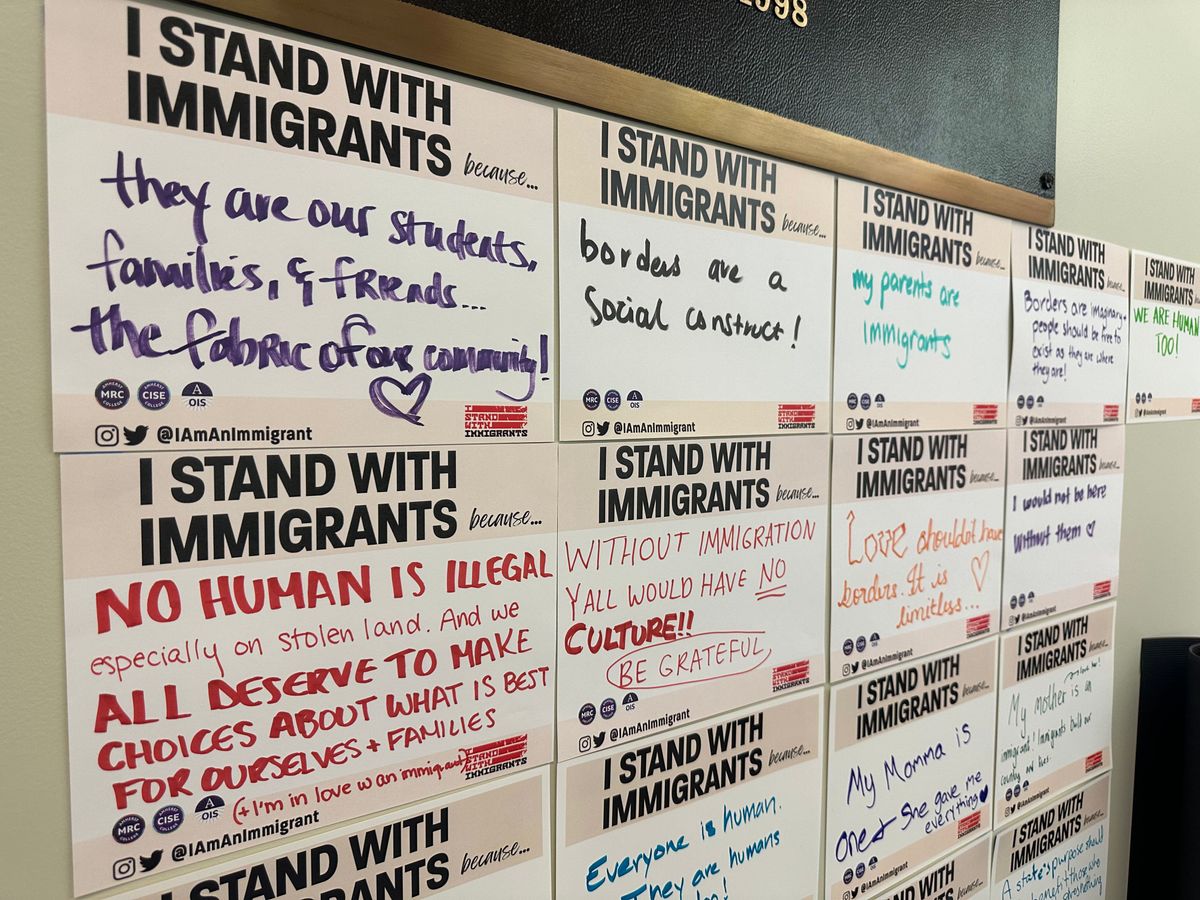 1998
I STAND WITH
IMMIGRANTS because...
they are our students,
families, & friends...
the fabric of our community!
AMHERST
MRC
COLLEGE
AMHERST
CISE
COLLEGE
A
OIS
@IAmAnImmigrant
I
STAND
WITH
IMMIGRANTS
I STAND WITH
IMMIGRANTS because...
borders are a
Social construct!
MRC
CISE
A
OIS
@IAmAnImmigrant
I
STAND
WITH
IMMIGRANTS
I STAND WITH
IMMIGRANTS because...
my parents are
immigrants
@IAmAnImmigrant
I STAND WITH
IMMIGRANTS because...
Borders are imaginary +
people should be free to
exist as they are where
they are!
@IAmAnImmigrant
I STAND WITH
IMMIGRANTS
WE ARE HUMAN
TOO!
@IAmAnImmigrant
I STAND WITH
IMMIGRANTS because...
NO HUMAN IS ILLEGAL
especially on stolen land. And we
ALL DESERVE TO MAKE
CHOICES ABOUT WHAT IS BEST
FOR OURSELVES + FAMILIES
(+ I'm in love w an immigrant)
AMHERST
MRC
COLLEGE
AMHERST
CISE
COLLEGE
A
OIS
@IAmAnImmigrant
I
STAND
WITH
IMMIGRANTS
I STAND WITH
IMMIGRANTS because...
WITHOUT IMMIGRATION
YALL WOULD HAVE NO
CULTURE!!
BE GRATEFUL
MRC
CISE
A
OIS
@IAmAnImmigrant
I
STAND
WITH
IMMIGRANTS
I STAND WITH
IMMIGRANTS because...
Love shouldnt have
borders. It is
limitless...
@IAmAnImmigrant
I STAND WITH
IMMIGRANTS because...
I would not be here
without them
@IAmAnImmigrant
I STAND WITH
IMMIGRANTS because...
My mother is an
immigrant! Immigrants build our
country and lives.
@IAmAnImmigrant
I STAND WITH
IMMIGRANTS because...
My Momma is
one & She gave me
everything
@IAmAnImmigrant
I STAND WITH
IMMIGRANTS because...
Everyone is human.
They are humans
I STAND WITH
IMMIGRANTS because...
I STAND WITH
IMMIGRANTS because...
A state's purpose should
I STAND WITH
because...